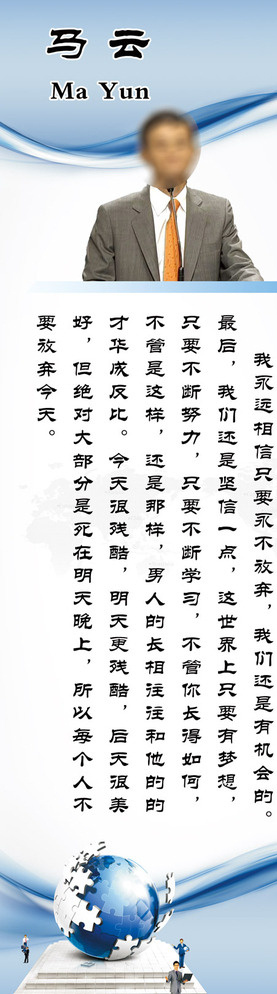 马云
Ma Yun
我永远相信只要永不放弃，我们还是有机会的。
最后，我们还是坚信一点，这世界上只要有梦想，
只要不断努力，只要不断学习，不管你长得如何，
不管是这样，还是那样，男人的长相往往和他的的
才华成反比。今天很残酷，明天更残酷，后天很美
好，但绝对大部分是死在明天晚上，所以每个人不
要放弃今天。